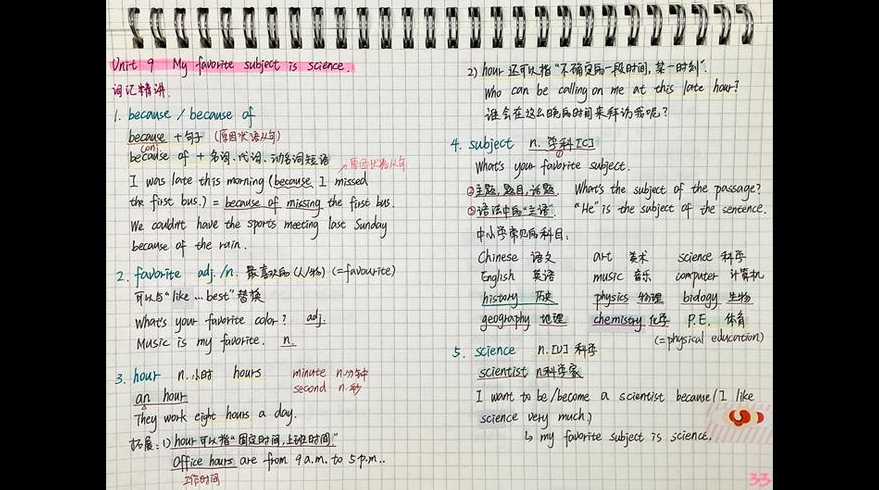 Unit 9 My favorite subject is science.
词汇精讲.
1. because / because of
because + 句子 (原因状语从句)
(conj.
because of + 名词、代词、动名词短语
原因状语从句
I was late this morning (because I missed
the first bus.) = because of missing the first bus.
We couldn't have the sports meeting last Sunday
because of the rain.
2. favorite adj./n. 最喜欢的(人/物) (=favourite)
可以与"like ... best"替换
What's your favorite color? adj.
Music is my favorite. n.
3. hour n.小时 hours minute n.分钟
second n.秒
an hour
They work eight hours a day.
拓展: 1) hour 可以指"固定时间,上班时间."
Office hours are from 9 a.m. to 5 p.m..
工作时间
2) hour 还可以指"不确定的一段时间,某一时刻".
Who can be calling on me at this late hour?
谁会在这么晚的时间来拜访我呢?
4. subject n. 学科[C]
What's your favorite subject.
①主题,题目,话题. What's the subject of the passage?
②语法中的"主语". "He" is the subject of the sentence.
中小学常见的科目:
Chinese 语文 art 美术 science 科学
English 英语 music 音乐 computer 计算机
history 历史 physics 物理 biology 生物
geography 地理 chemistry 化学 P.E. 体育
(=physical education)
5. science n.[U] 科学
scientist n科学家
I want to be/become a scientist because (I like
science very much.)
↳ my favorite subject is science.
33